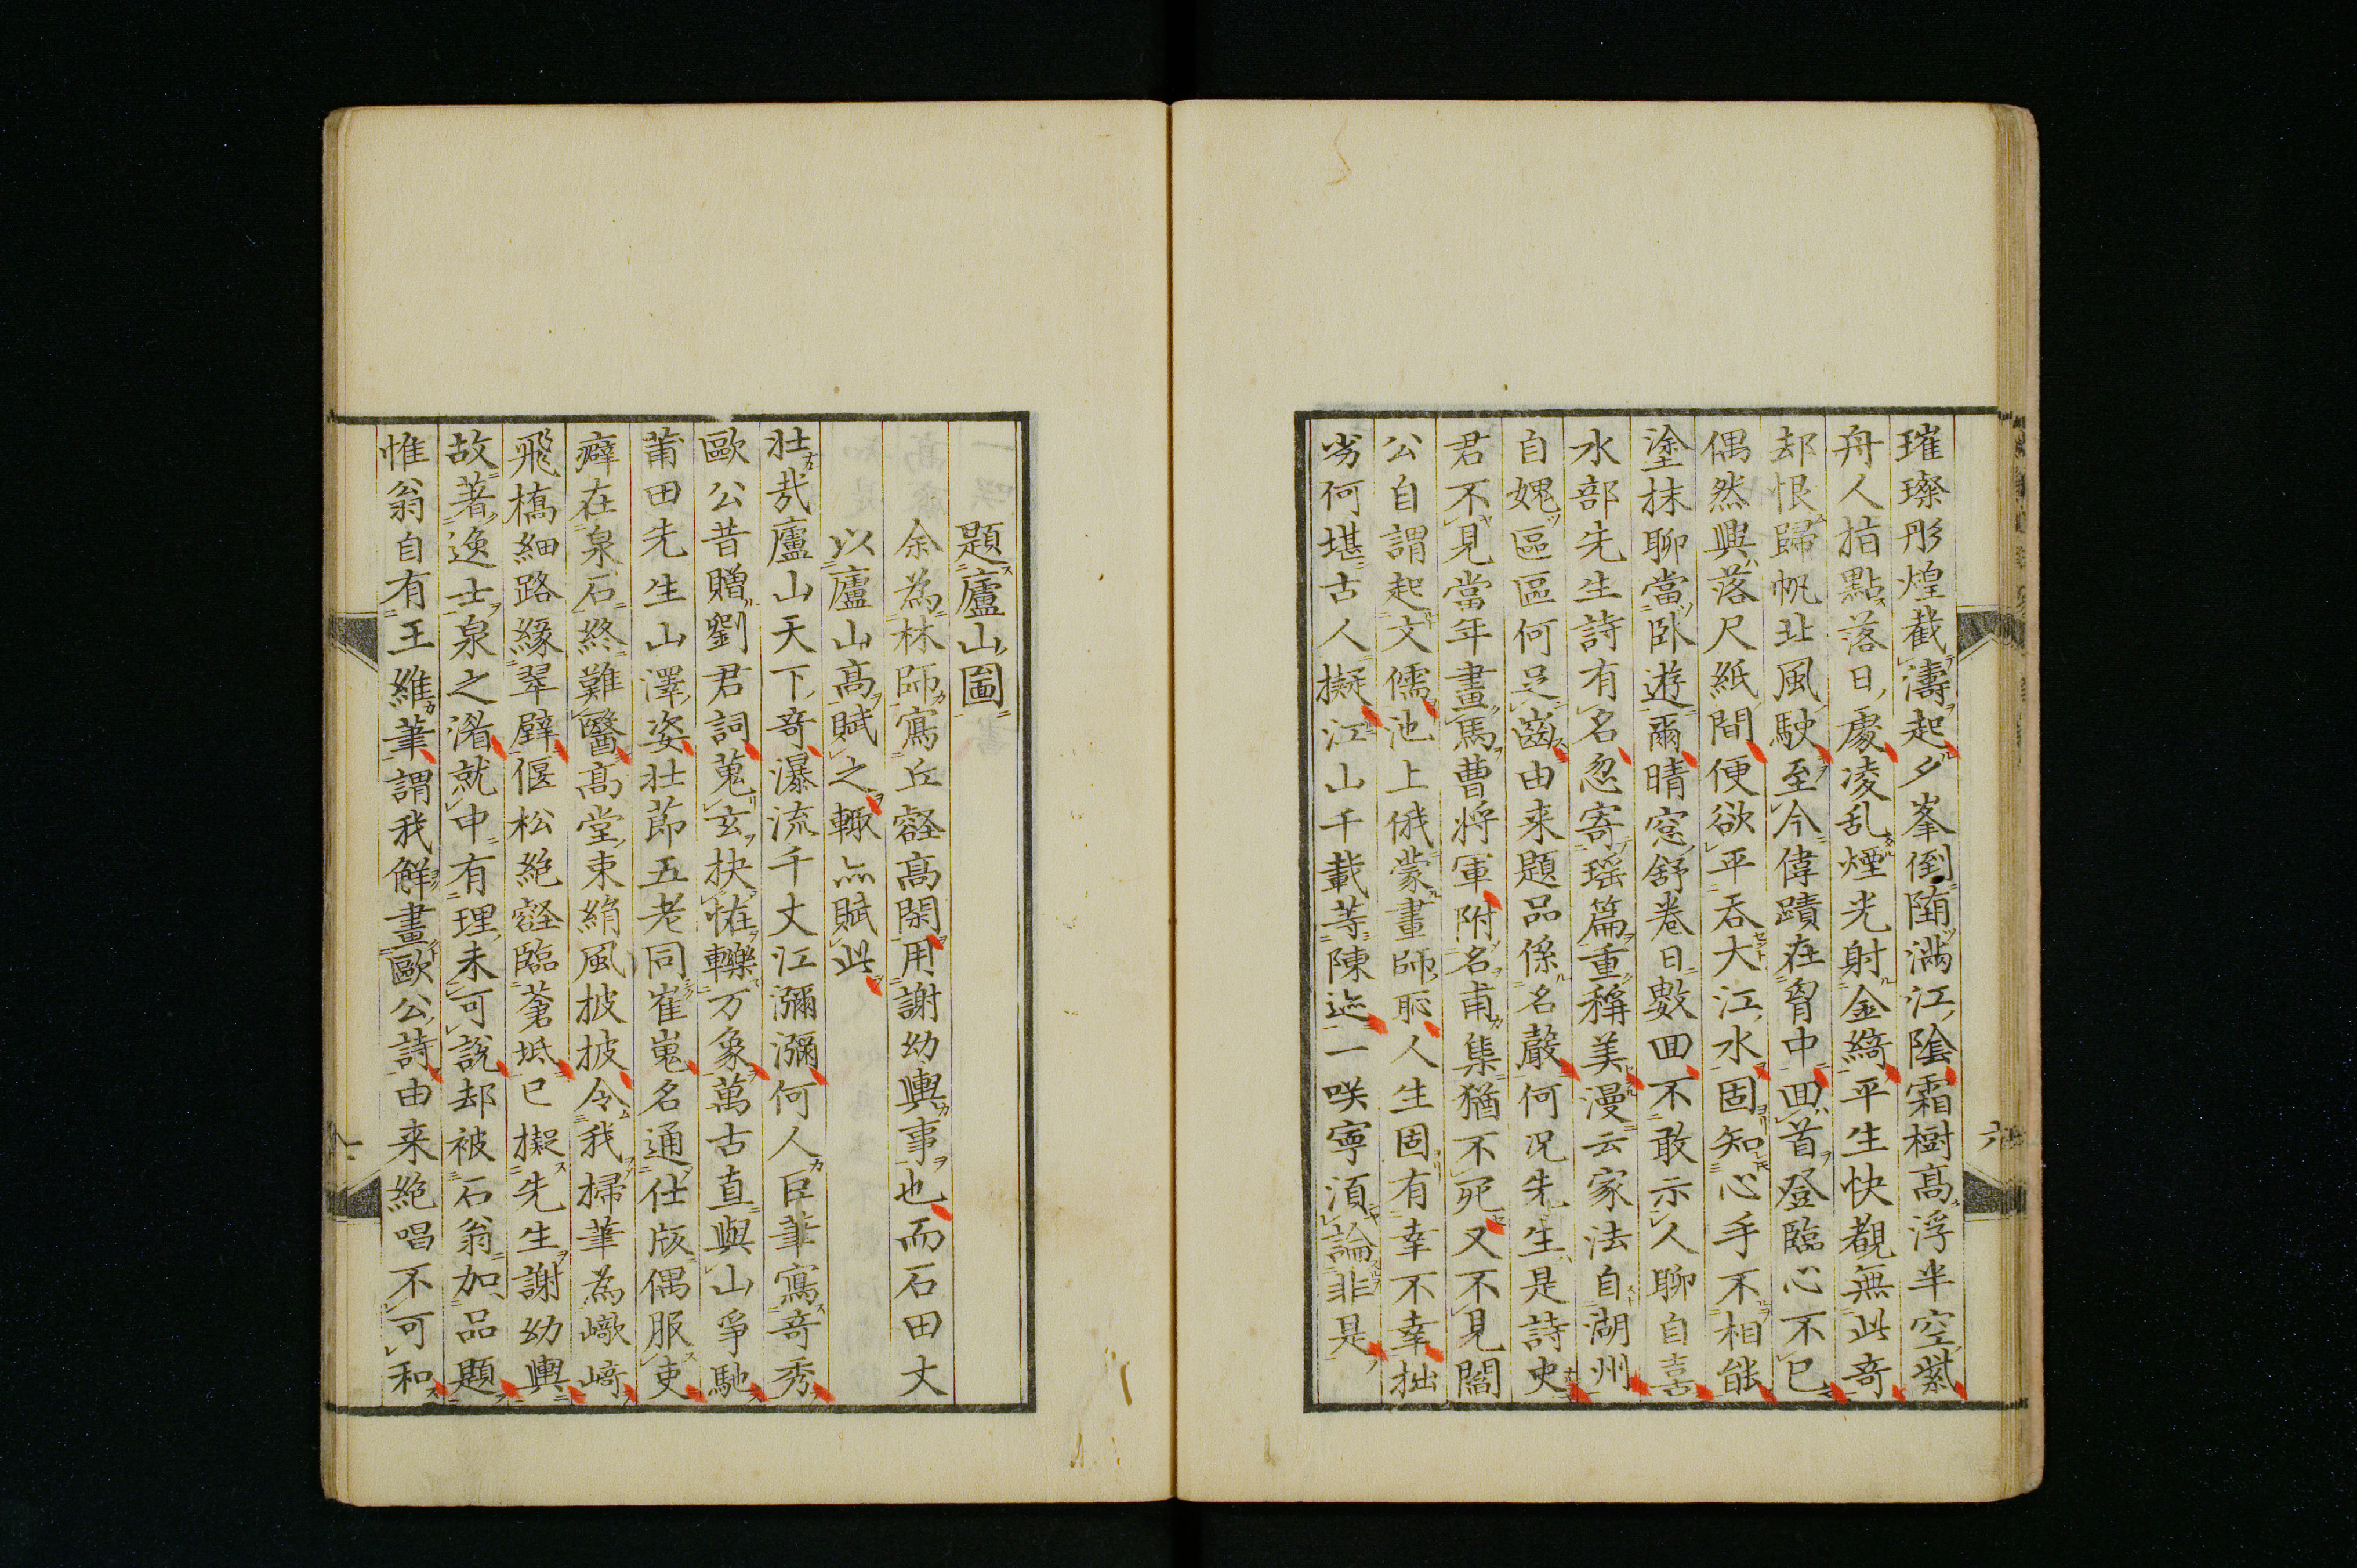 璀璨彤煌截濤起夕峯倒随满江陰霜樹髙浮半空紫
舟人指點落日處凌乱煙光射金綺平生快覩無此竒
却恨歸帆北風駛至今偉蹟在胷中囬首登臨心不已
偶然興落尺紙間便欲平吞大江水固知心手不相能
塗抹聊當臥遊爾晴窓舒卷日數囬不敢示人聊自喜
水部先生詩有名忽寄瑶篇重稱美漫云家法自湖州
自媿區區何足齒由来題品係名嚴何况先生是詩史
君不見當年畫馬曹將軍附名甫集猶不死又不見閻
公自謂起文儒池上俄蒙畫師恥人生固有幸不幸拙
劣何堪古人擬江山千載等陳迹一咲寧湏論非是
六
題廬山圖
余為林師寫丘壑髙閑用謝幼輿事也而石田丈
以廬山髙賦之輙亦賦此
壮㢤廬山天下竒瀑流千丈江瀰瀰何人巨筆寫竒秀
歐公昔贈劉君詞蒐玄抉恠轢万象萬古直與山爭馳
莆田先生山澤姿壮節五老同崔嵬名通仕版偶服吏
癖在泉石終難醫髙堂束絹風披披令我掃筆為㠜﨑
飛橋細路緣翠壁偃松絶壑臨蒼坻已擬先生謝幼輿
故著逸士泉之湝就中有理未可說却被石翁加品題
惟翁自有王維筆謂我觧畫歐公詩由来絶唱不可和